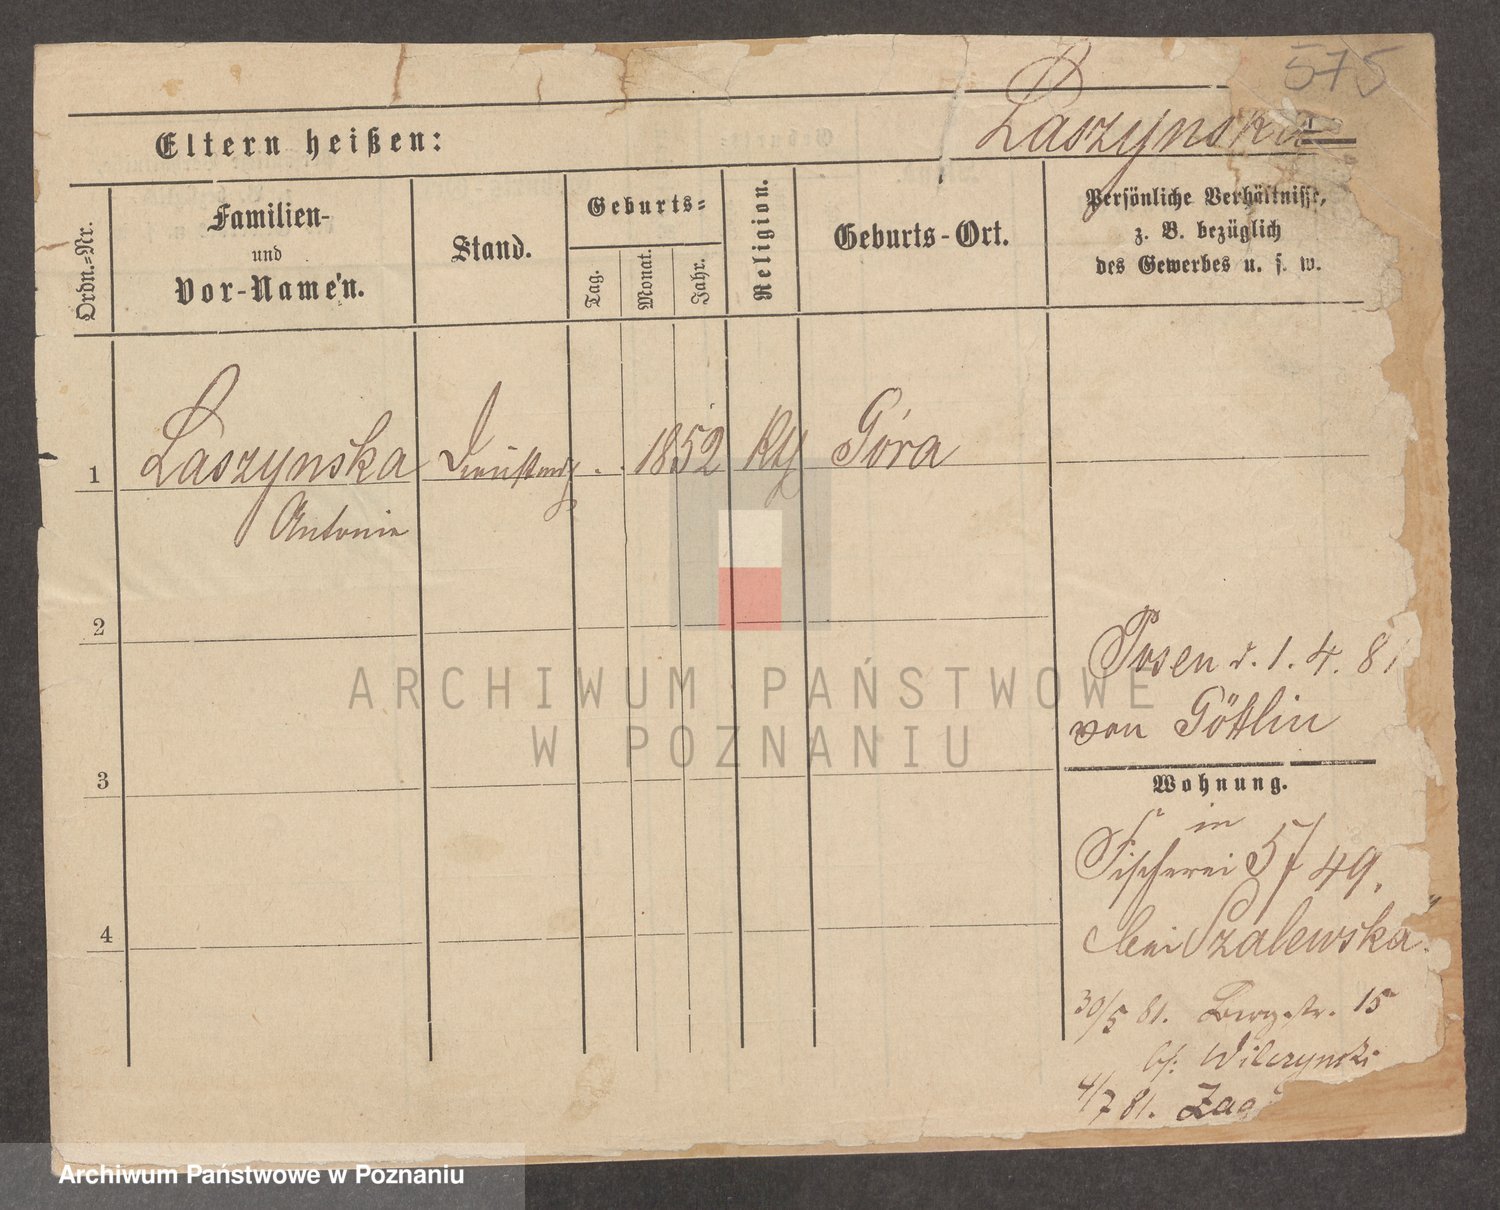 575
Laszynska
Eltern heißen:
Ordn.-Nr.
Familien-
und
Vor-Namen.
Stand.
Geburts-
Tag.
Monat.
Jahr.
Religion.
Geburts-Ort.
Persönliche Verhältnisse,
z. B. bezüglich
des Gewerbes u. s. w.
1
Laszynska
Antonie
1852
Kth
Góra
2
3
4
Posen d. 1. 4. 81
von Göttlin
Wohnung.
in
Fischerei 5/49.
bei Szalewska
30/5 81. Bergstr. 15
bei Wilczynski
4/7 81. Zag
ARCHIWUM PAŃSTWOWE
W POZNANIU
Archiwum Państwowe w Poznaniu